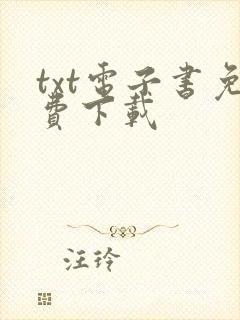 txt電子書免
費下載
汪玲